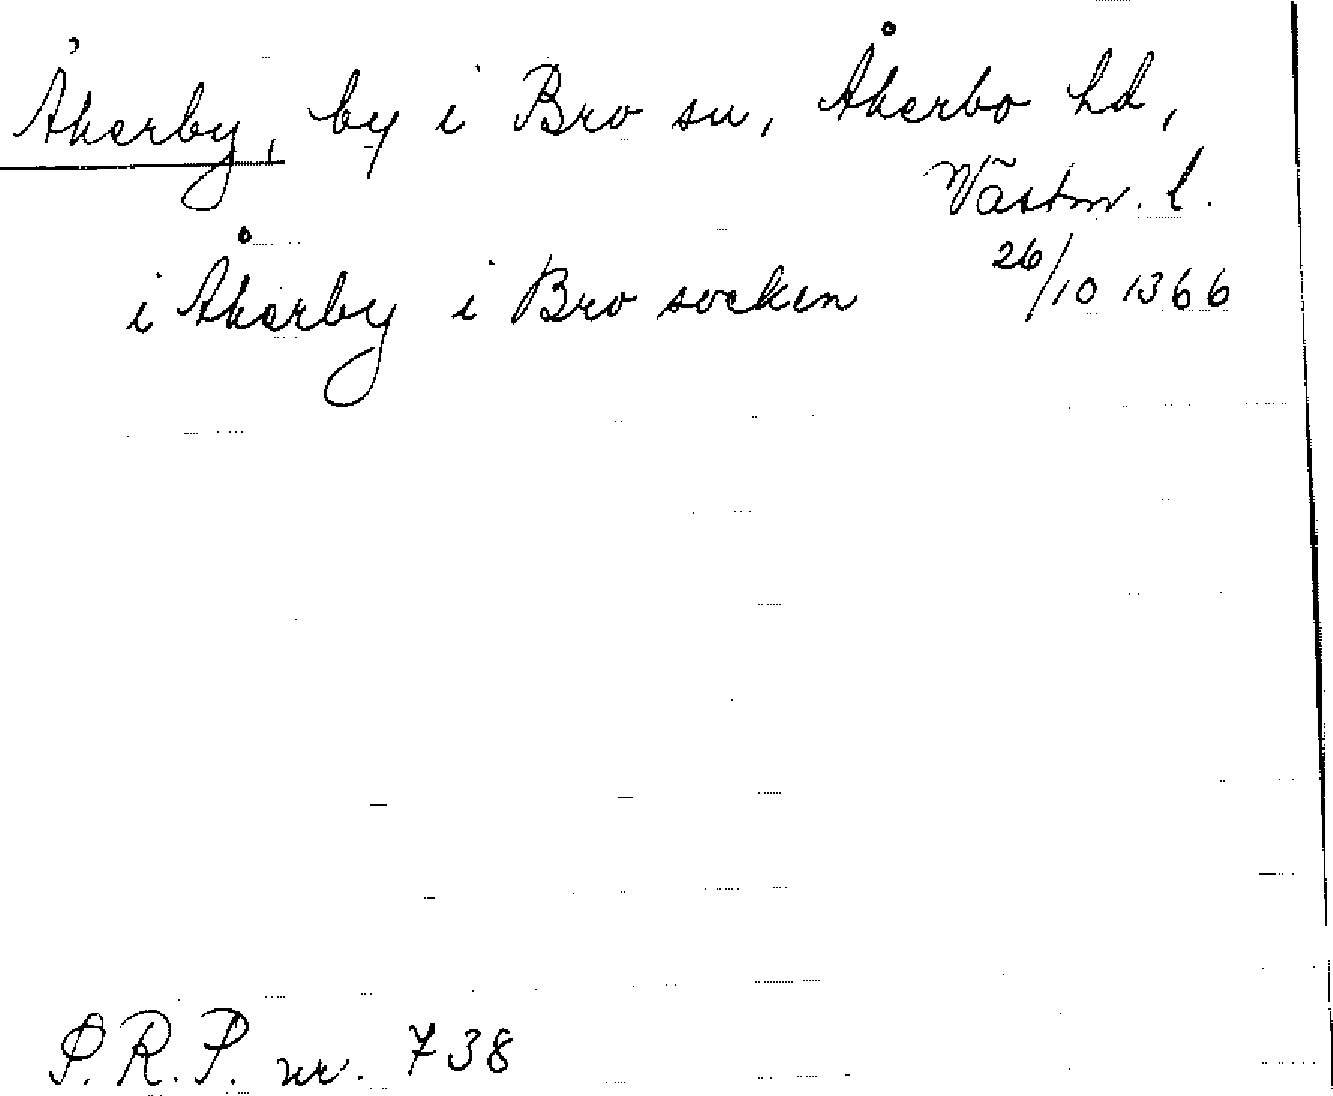 Åkerby, by i Bro sn, Åkerbo hd,
Västm. l.
i Åkerby i Bro socken 26/10 1366
P.R.P. nr. 738